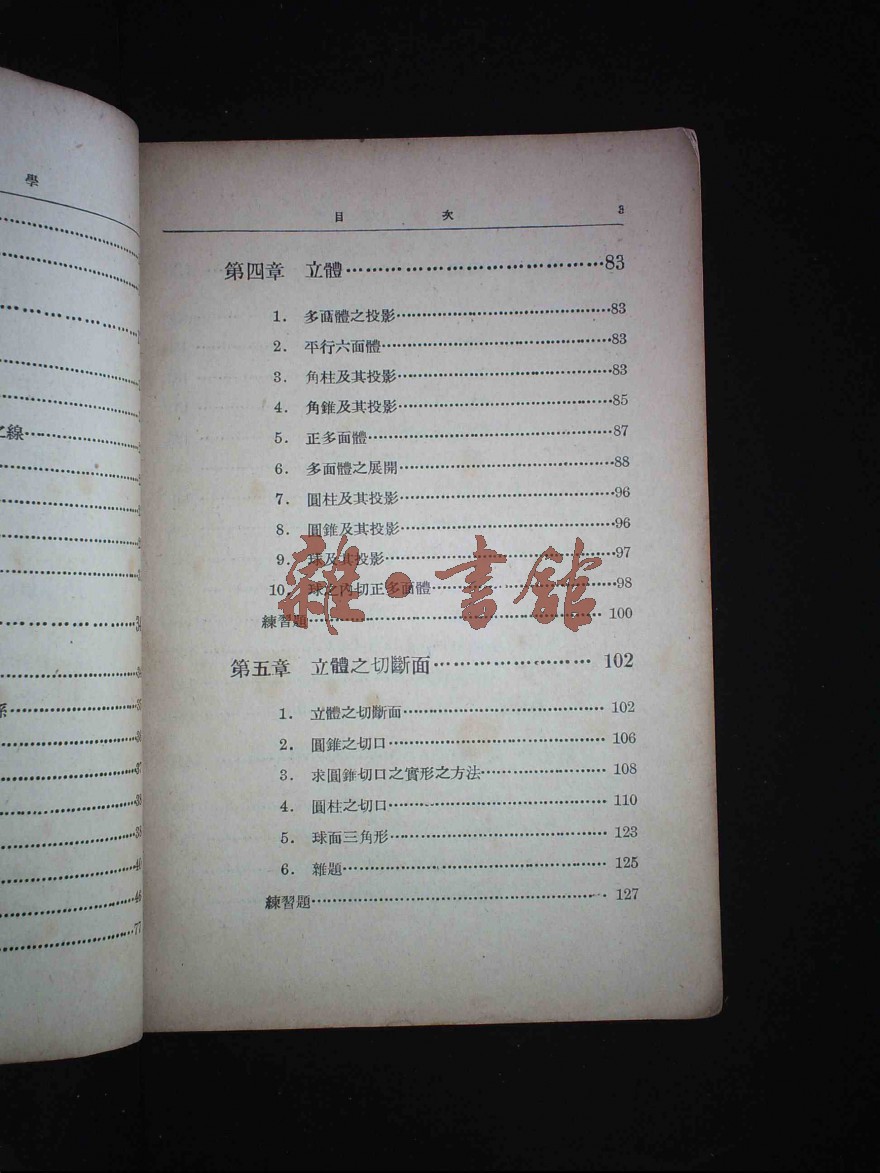 學
之線
34
36
37
38
38
40
46
77
目 次 3
第四章 立體 83
1. 多面體之投影 83
2. 平行六面體 83
3. 角柱及其投影 83
4. 角錐及其投影 85
5. 正多面體 87
6. 多面體之展開 88
7. 圓柱及其投影 96
8. 圓錐及其投影 96
9. 球及其投影 97
10. 球之內切正多面體 98
練習題 100
第五章 立體之切斷面 102
1. 立體之切斷面 102
2. 圓錐之切口 106
3. 求圓錐切口之實形之方法 108
4. 圓柱之切口 110
5. 球面三角形 123
6. 雜題 125
練習題 127
雜·書館